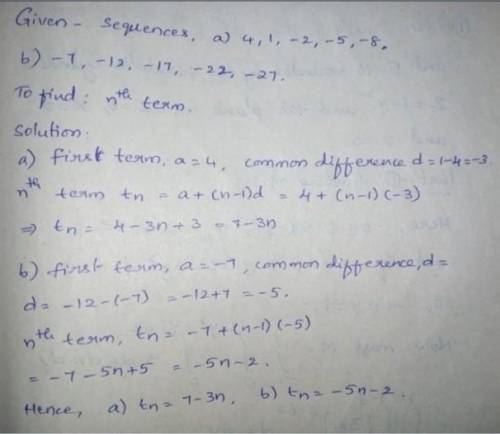 Given - sequences, a) 4, 1, -2, -5, -8.
b) -7, -12, -17, -22, -27.
To find: nth term.
Solution:
a) first term, a = 4, common difference d = 1-4 = -3
nth term tn = a + (n-1)d = 4 + (n-1)(-3)
⇒ tn = 4 - 3n + 3 = 7 - 3n
b) first term, a = -7, common difference, d =
d = -12 - (-7) = -12 + 7 = -5.
nth term, tn = -7 + (n-1)(-5)
= -7 - 5n + 5 = -5n - 2.
Hence, a) tn = 7 - 3n, b) tn = -5n - 2.